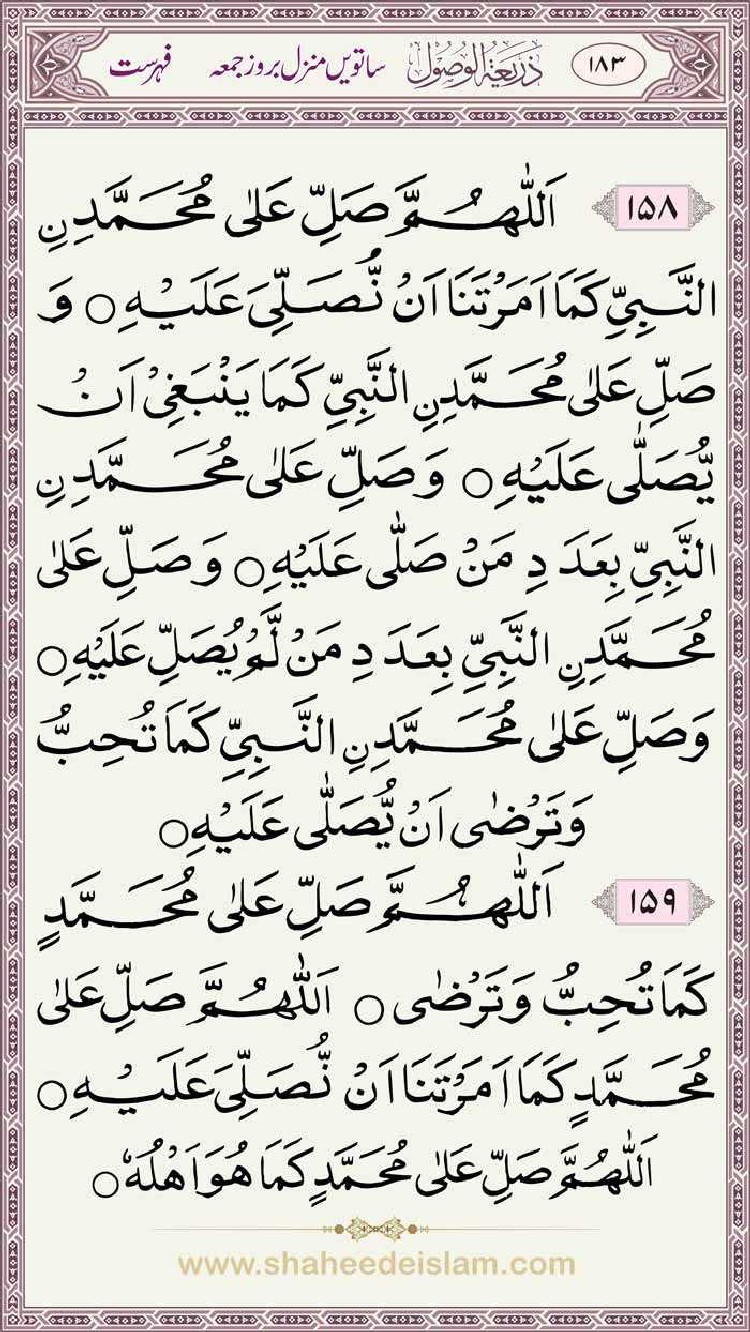 ۱۸۳ ذَرِیعَةُ الوُصُول ساتویں منزل بروز جمعہ فہرست
۱۵۸ اَللّٰهُمَّ صَلِّ عَلٰى مُحَمَّدِنِ
النَّبِيِّ كَمَا اَمَرْتَنَا اَنْ نُّصَلِّيَ عَلَيْهِ ○ وَ
صَلِّ عَلٰى مُحَمَّدِنِ النَّبِيِّ كَمَا يَنْبَغِيْ اَنْ
يُّصَلّٰى عَلَيْهِ ○ وَصَلِّ عَلٰى مُحَمَّدِنِ
النَّبِيِّ بِعَدَدِ مَنْ صَلّٰى عَلَيْهِ ○ وَصَلِّ عَلٰى
مُحَمَّدِنِ النَّبِيِّ بِعَدَدِ مَنْ لَّمْ يُصَلِّ عَلَيْهِ ○
وَصَلِّ عَلٰى مُحَمَّدِنِ النَّبِيِّ كَمَا تُحِبُّ
وَتَرْضٰى اَنْ يُّصَلّٰى عَلَيْهِ ○
۱۵۹ اَللّٰهُمَّ صَلِّ عَلٰى مُحَمَّدٍ
كَمَا تُحِبُّ وَتَرْضٰى ○ اَللّٰهُمَّ صَلِّ عَلٰى
مُحَمَّدٍ كَمَا اَمَرْتَنَا اَنْ نُّصَلِّيَ عَلَيْهِ ○
اَللّٰهُمَّ صَلِّ عَلٰى مُحَمَّدٍ كَمَا هُوَ اَهْلُهٗ ○
www.shaheedeislam.com